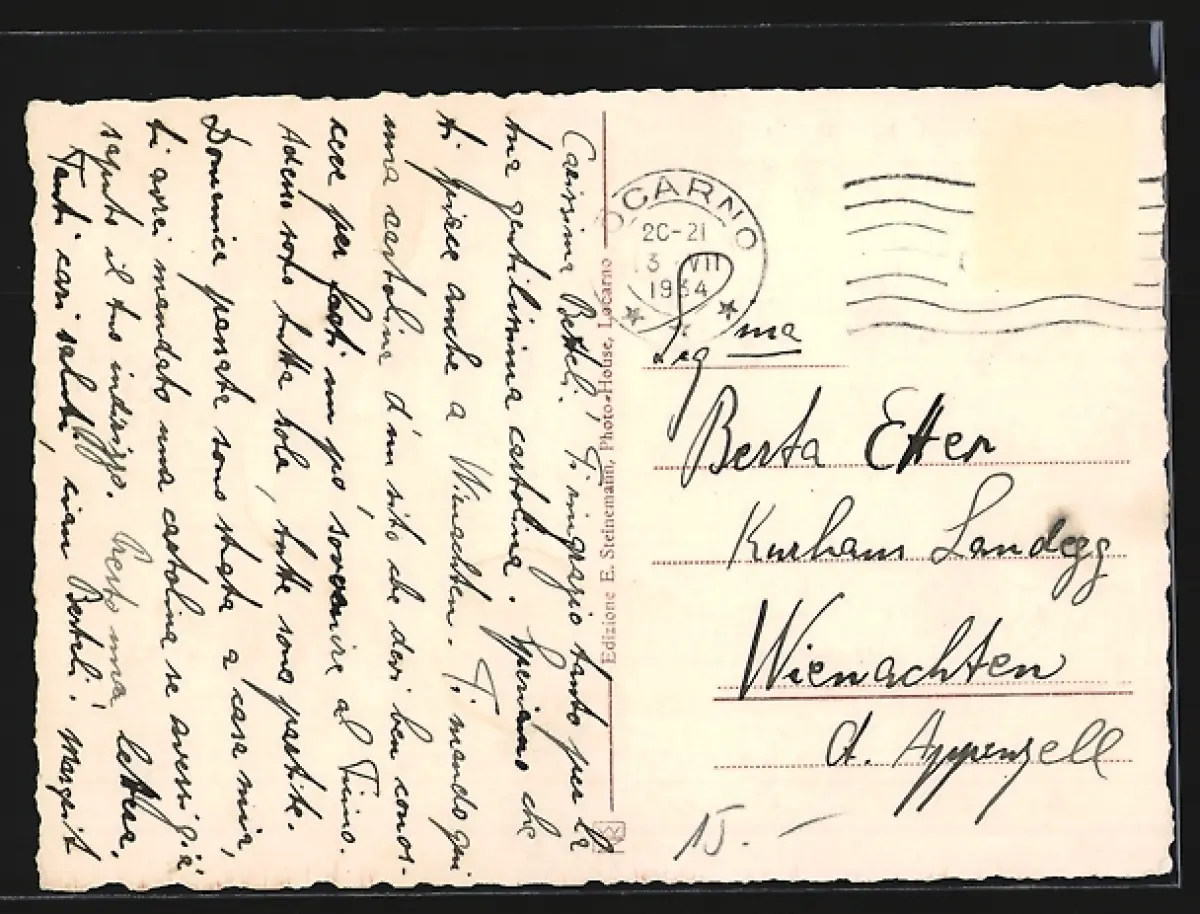 Carissima Betteli! Ti ringrazio tanto per la
tua gentilissima cartolina. Speriamo che
ti piace anche a Wienachten. Ti mando qui
una cartolina d'un sito che devi ben conos-
cere per farti un po' sovvenire al Ticino.
Adesso sono tutta sola, tutte sono partite.
Domenica passata sono stata a casa mia,
ti avrei mandato una cartolina se avessi già
saputo il tuo indirizzo. Presto una lettera.
Tanti cari saluti, ciau Betteli! Margrit
Edizione E. Steinemann, Photo-House, Locarno
LOCARNO
20-21
3 VII
1934
Sig ma
Berta Etter
Kurhaus Landegg
Wienachten
ct. Appenzell
15. –